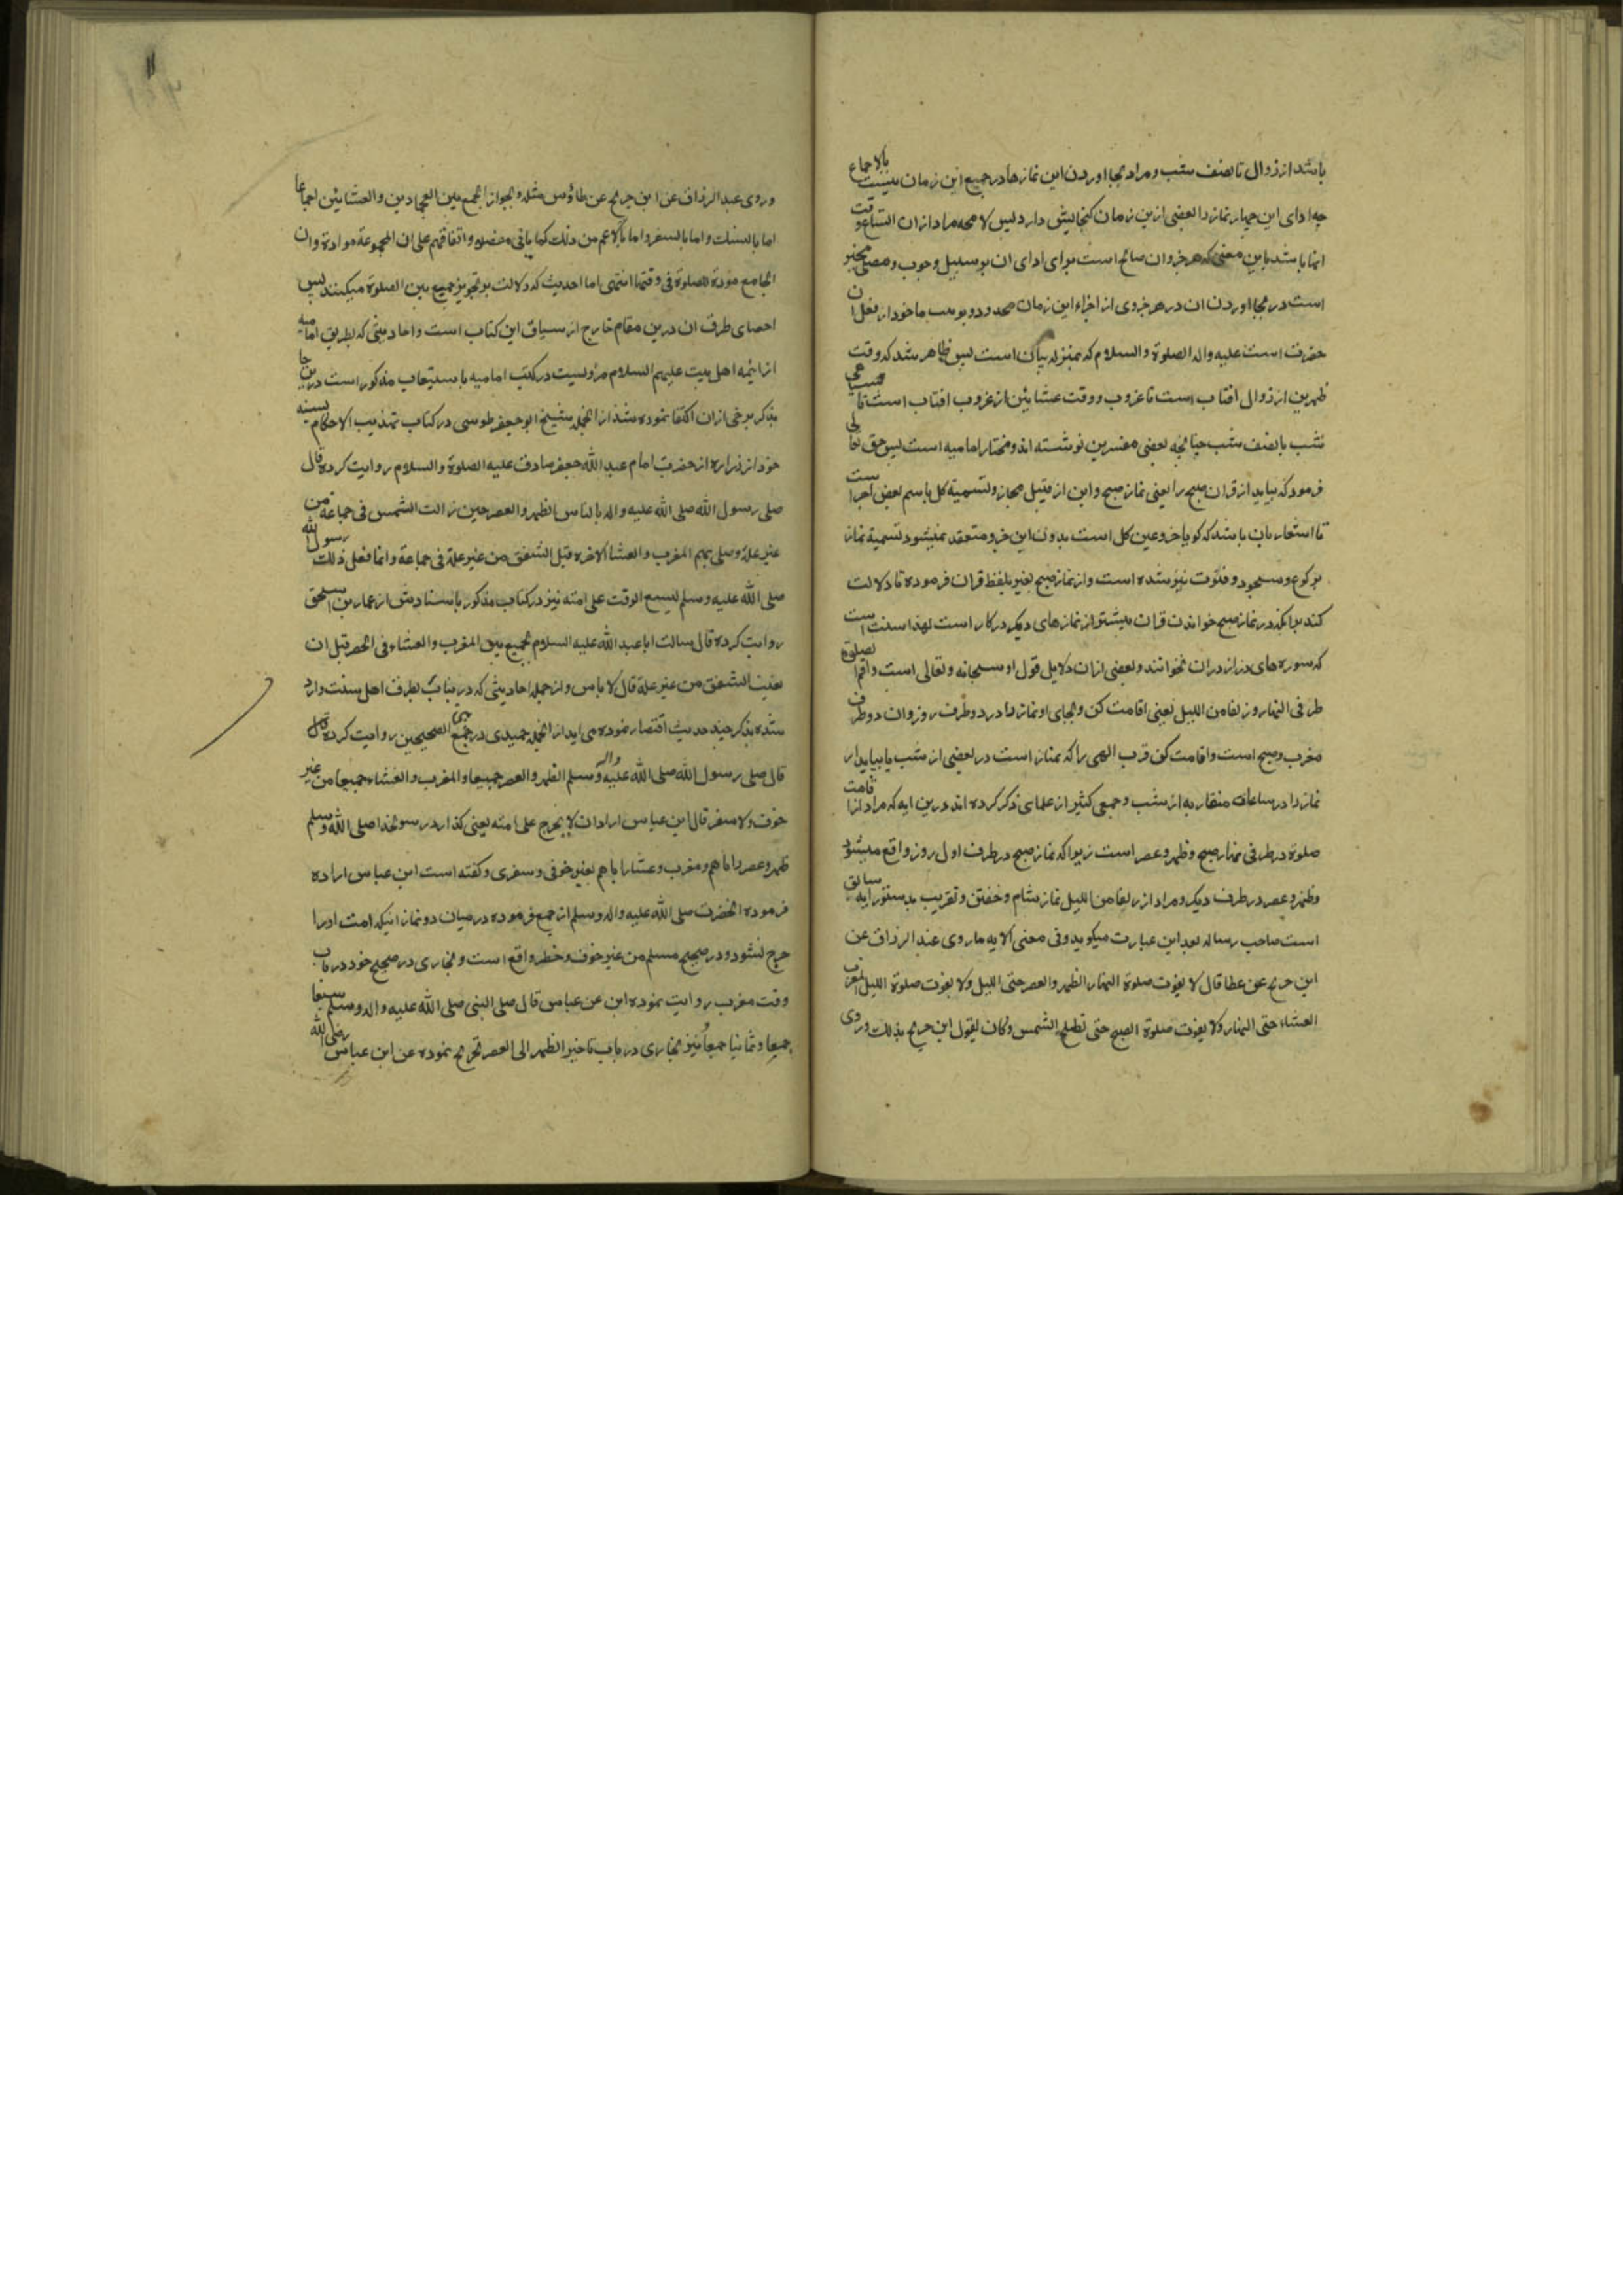 باشد از زوال تا نصف شب و مراد بجا اوردن این نمازها در جمیع این زمان نیست بالاجماع
چه ادای این چهار نماز را بعضی ازین زمان کنجایش دارد پس لا محه مراد ازان اتساع وقت
انها باشد باین معنی که هر جزو ان صالح است برای ادای ان بر سبیل وجوب و مصلی مخیر
است در بجا اوردن ان در هر جزوی از اجزاء این زمان محدود و بوسب ماخود از فعل ان
حضرت است علیه و اله الصلوة و السلام که بمنزله بیان است پس ظاهر شد که وقت
ظهرین از زوال افتاب است تا غروب و وقت عشائین از غروب افتاب است تا سیاهی
شب یا نصف شب چنانچه بعضی مفسرین نوشته اند و مختار امامیه است پس حق تعالی
فرمود که بیاید از قران صبح را یعنی نماز صبح و این از قبیل مجاز و تسمیة کل باسم بعض اجزاست
تا استعار بان باشد که کویا جزو عین کل است بدون این جزو منعقد نمیشود تسمیة نماز
برکوع و سجود و قنوت نیز شده است و از نماز صبح بغیر بلفظ قران فرموده تا دلالت
کند برانکه در نماز صبح خواندن قران بیشتر از نمازهای دیکر در کار است لهذا سنت است
که سوره های دراز دران بخوانند و بعضی ازان دلایل قول او سبحانه و تعالی است واقم الصلوة
طرفی النهار و زلفا من اللیل یعنی اقامت کن و بجای او نماز را در دو طرف روز و ان دو طرف
مغرب و صبح است و اقامت کن قرب الهی را که نماز است در بعضی از شب یا بیایدار
نماز را در ساعات متقاربه از شب و جمعی کثیر از علمای ذکر کرده اند درین ایه که مراد از اقامت
صلوة در طرفی نهار صبح و ظهر و عصر است زیرا که نماز صبح در طرف اول روز واقع میشود
و ظهر و عصر در طرف دیکر و مراد از زلفا من اللیل نماز شام و خفتن و تقریب بدستور ایه سابق
است صاحب رساله بعد این عبارت میکوید و فی معنی الایه ما روی عبد الرزاق عن
ابن جریج عن عطا قال لا یفوت صلوة النهار الظهر والعصر حتی اللیل ولا یفوت صلوة اللیل المغرب
العشاء حتی النهار ولا یفوت صلوة الصبح حتی تطلع الشمس وکان یقول ابن جریج بذلک وروی
وروی عبد الرزاق عن ابن جریج عن طاؤس مثله و بجواز الجمع بین العجادین والعشائین اجماعا
اما بالنسک واما بالسفر واما بالاعم من ذلک کما یاتی مفصله واتفاقهم علی ان المجموعة موادة وان
الجامع مودة للصلوة فی وقتها انتهی اما احدیث که دلالت بر تجویز جمیع بین الصلوة میکنند پس
احصای طرق ان درین مقام خارج از سیاق این کتاب است و احادیثی که بطریق امامیه
از ائمه اهل بیت علیهم السلام مرویست در کتب امامیه باستیعاب مذکور است درین جا
بذکر برخی ازان اکتفا نموده شد از انجمله شیخ ابو جعفر طوسی در کتاب تهذیب الاحکام بسنده
خود از زراره از حضرت امام عبد الله جعفر صادق علیه الصلوة والسلام روایت کرده قال
صلی رسول الله صلی الله علیه و اله بالناس الظهر والعصر حین زالت الشمس فی جماعة من
غیر علة وصلی بهم المغرب والعشا الاخرة قبل الشفق من غیر علة فی جماعة وانما فعل ذلک رسول الله
صلی الله علیه وسلم لیسع الوقت علی امته نیز در کتاب مذکور باسنادش از عمار بن اسحق
روایت کرده قال سالت ابا عبد الله علیه السلام بجمیع بین المغرب والعشاء فی الحضر قبل ان
تغیب الشفق من غیر علة قال لا باس و از جمله احادیثی که درینباب بطرف اهل سنت وارد
شده بذکر چند حدیث اقتصار نموده می اید از انجمله حمیدی در جمع الصحیحین روایت کرده قال
قال صلی رسول الله صلی الله علیه واله وسلم الظهر والعصر جمیعا والمغرب والعشاء جمیعا من غیر
خوف ولا سفر قال ابن عباس اراد ان لا یحرج علی امته یعنی کذارد رسولخدا صلی الله وسلم
ظهر و عصر را با هم و مغرب و عشا را با هم بغیر خوفی و سفری و کفته است ابن عباس اراده
فرموده انحضرت صلی الله علیه واله وسلم از جمع فرموده در میان دو نماز انیکه امت او را
حرج نشود و در صحیح مسلم من غیر خوف و خطر واقع است و بخاری در صحیح خود در باب
وقت مغرب روایت نموده ابن عن عباس قال صلی النبی صلی الله علیه واله وسلم سبعا
جمیعا وثمانیا جمیعا و نیز بخاری در باب تاخیر الظهر الی العصر تخریج نموده عن ابن عباس رضی الله